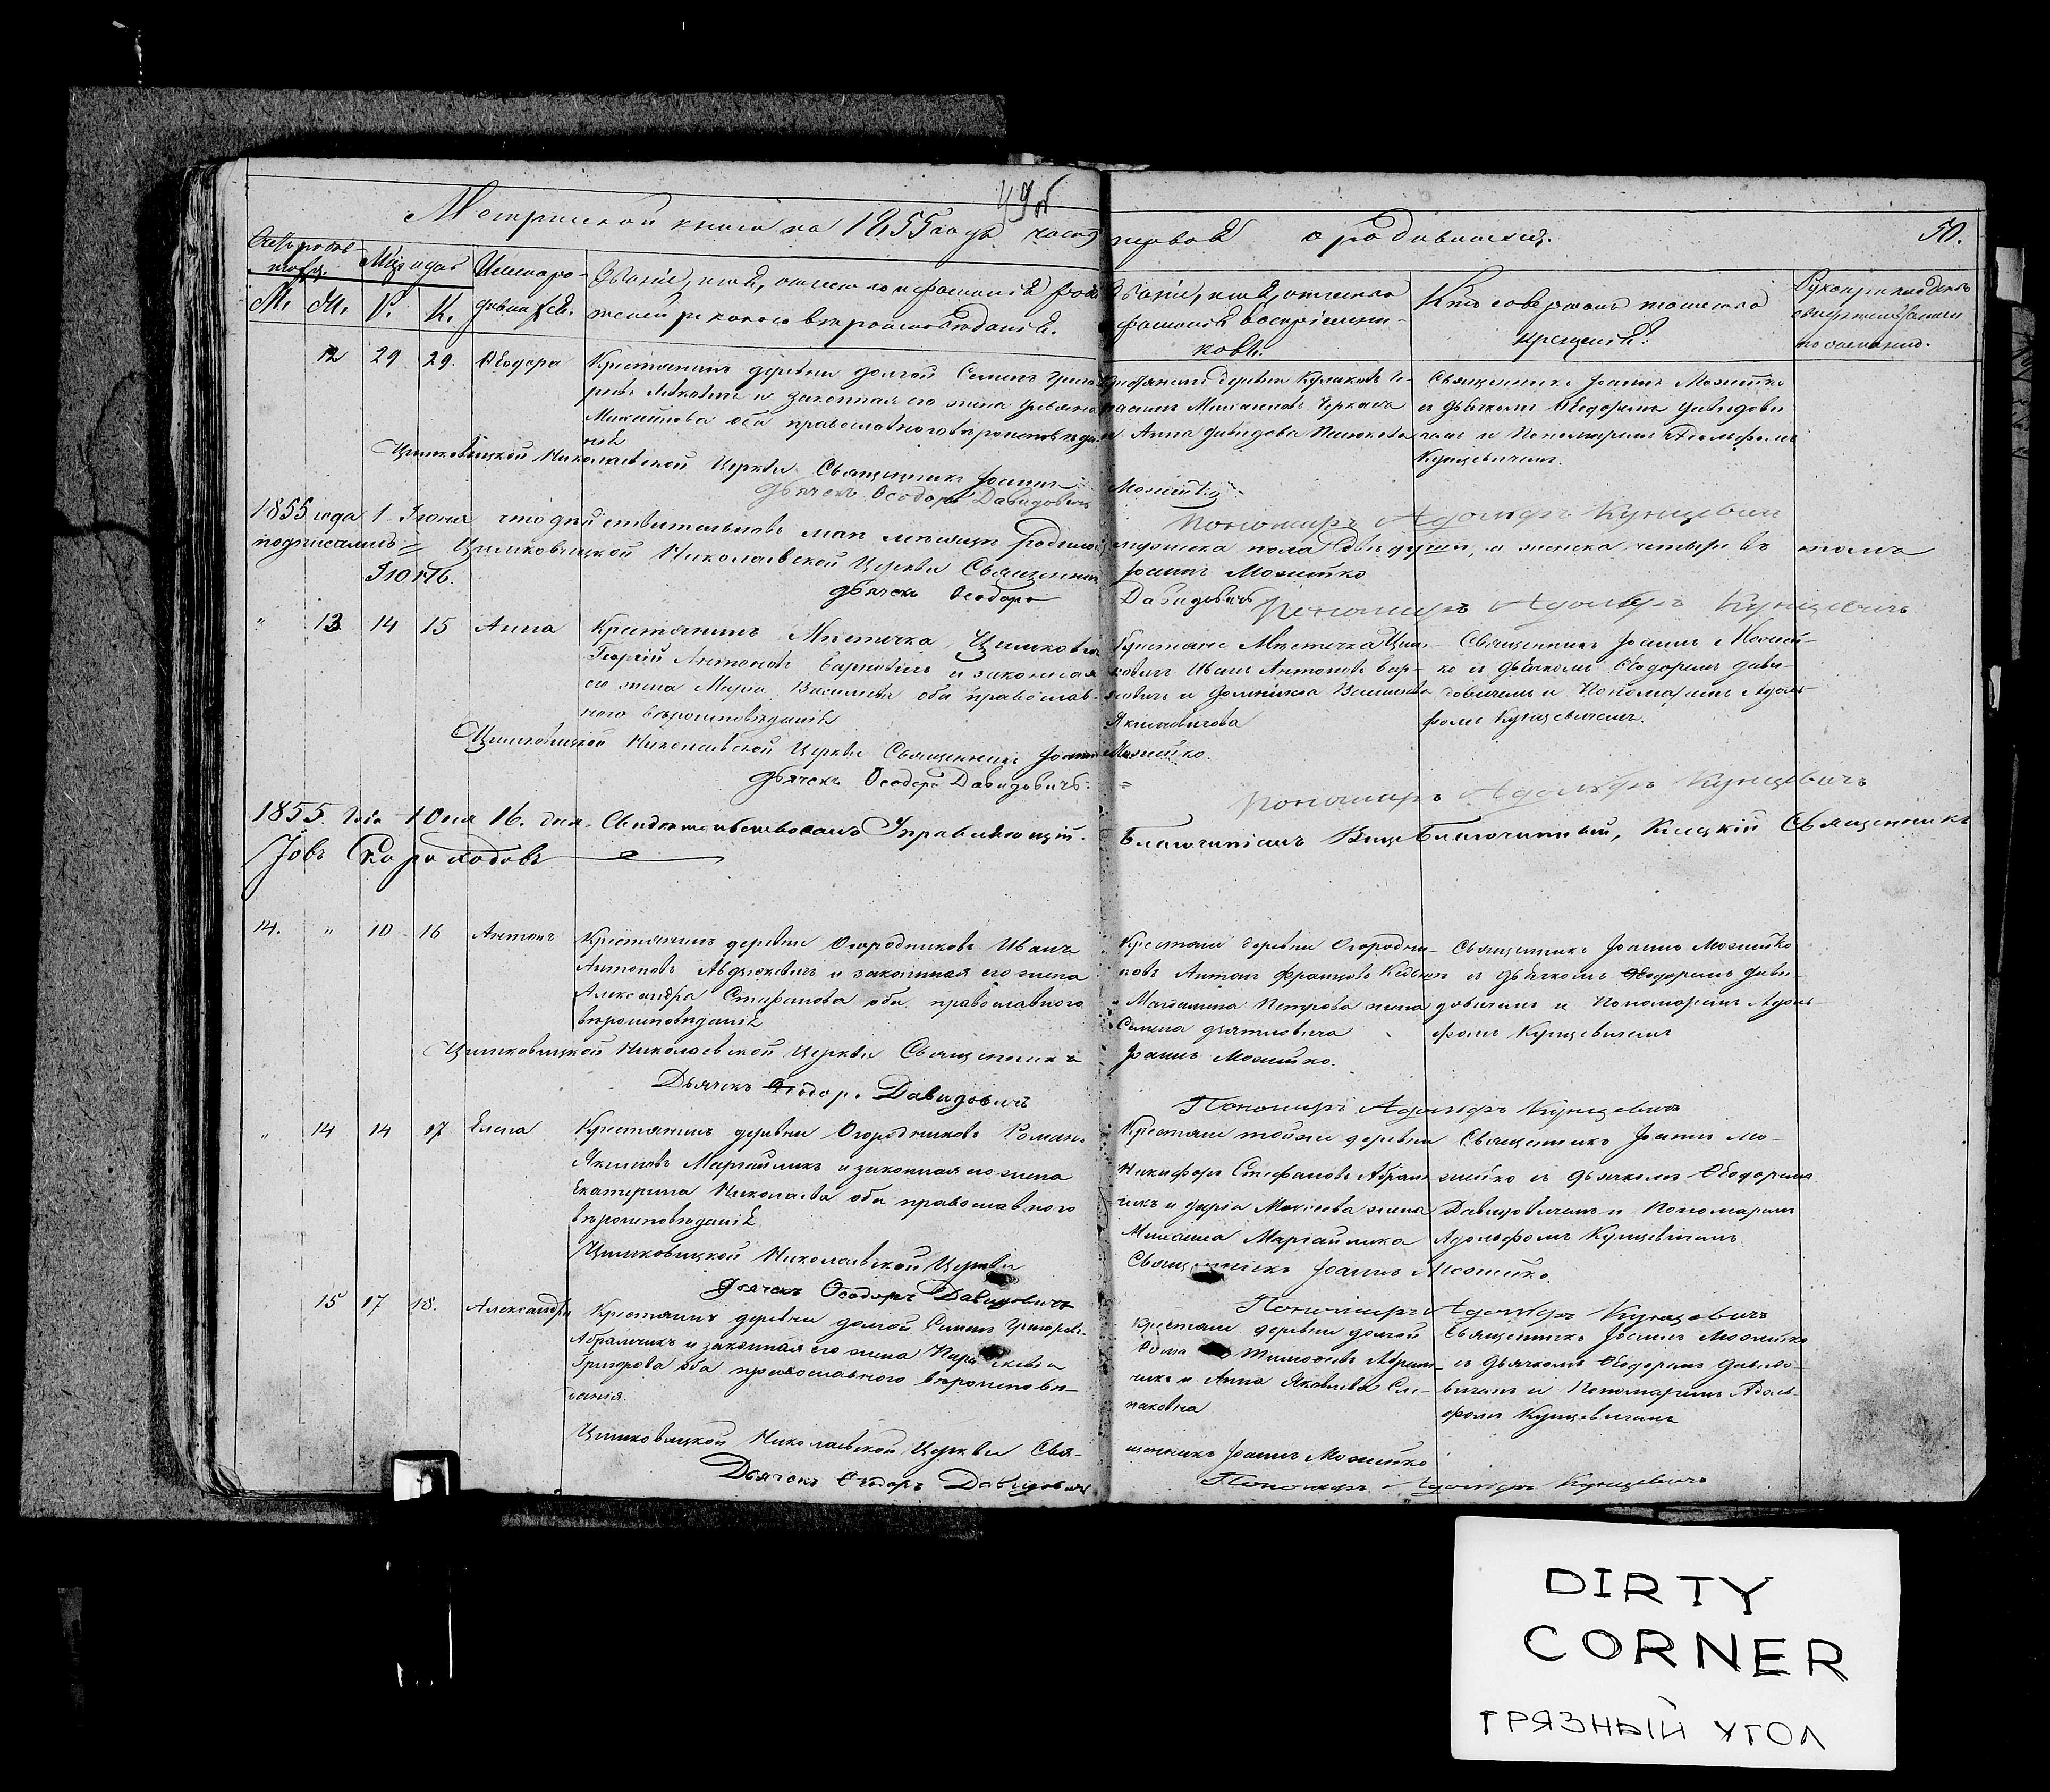 49об
Метрической книги на 1855 годъ часть первая о родившихся.
50.
Счетъ родившихся
Мѣсяцъ и день
Имена родившихся.
Званіе, имя, отчество и фамилія родителей и какого вѣроисповѣданія.
Званіе, имя, отчество фамилія воспріемниковъ.
Кто совершалъ таинство крещенія?
Рукоприкладство свидѣтелей записи по желанію.
М. Ж. Р. К.
12 29 29. Ѳеодора
Крестьянинъ деревни Долгой Семенъ Григорьевъ
и законная его жена Ульяна
Михайлова оба православнаго вѣроисповѣданія
Крестьянинъ деревни Куликовъ
Михайловъ
и Анна Давидова
Священникъ Іоаннъ Можейко
съ Дьячкомъ Ѳеодоромъ Давидовичемъ
и Пономаремъ Адольфомъ
Кунцевичемъ.
Цимковицкой Николаевской Церкви Священникъ Іоаннъ Можейко
Дьячекъ Ѳеодоръ Давидовичъ
Пономарь Адольфъ Кунцевичъ
1855 года 1 Іюня что дѣйствительно въ маѣ мѣсяцѣ родилось мужеска пола двѣ души, а женска четыре въ томъ
подписались = Цимковицкой Николаевской Церкви Священникъ Іоаннъ Можейко
Іюнь.
Дьячекъ Ѳеодоръ Давидовичъ Пономарь Адольфъ Кунцевичъ
" 13 14 15 Анна
Крестьянинъ Мѣстечка Цимковичъ
Георгій Антоновъ и законная
его жена Марія Васильева оба православнаго вѣроисповѣданія
Крестьяне Мѣстечка Цимковичъ Иванъ Антоновъ
и Доминика
Якимовичова
Священникъ Іоаннъ Можейко
съ Дьячкомъ Ѳеодоромъ Давидовичемъ
и Пономаремъ Адольфомъ Кунцевичемъ.
Цимковицкой Николаевской Церкви Священникъ Іоаннъ Можейко.
Дьячекъ Ѳеодоръ Давидовичъ. =
Пономарь Адольфъ Кунцевичъ
1855 года Іюня 16. дня. Свидѣтельствовалъ Управляющій Благочиніемъ Вице Благочинный, Клецкій Священникъ
Іовъ
14. " 10 16 Антонъ
Крестьянинъ деревни Огородниковъ Иванъ
Антоновъ Авдюкевичъ и законная его жена
Александра Стефанова оба православнаго
вѣроисповѣданія
Крестьяне деревни Огородниковъ
Антонъ Францовъ
и Магдалина Петрова жена
Семена
Священникъ Іоаннъ Можейко
съ Дьячкомъ Ѳеодоромъ Давидовичемъ
и Пономаремъ Адольфомъ Кунцевичемъ
Цимковицкой Николаевской Церкви Священникъ Іоаннъ Можейко.
Дьячекъ Ѳеодоръ Давидовичъ
Пономарь Адольфъ Кунцевичъ
" 14 14 17 Елена
Крестьянинъ деревни Огородниковъ Романъ
Якимовъ Маргайликъ и законная его жена
Екатерина Николаева оба православнаго
вѣроисповѣданія
Крестьяне той же деревни
Никифоръ Стефановъ Абрамчикъ
и Дарія Моисеева жена
Михаила Маргайлика
Священникъ Іоаннъ Можейко
съ Дьячкомъ Ѳеодоромъ
Давидовичемъ и Пономаремъ
Адольфомъ Кунцевичемъ.
Цимковицкой Николаевской Церкви Священникъ Іоаннъ Можейко.
Дьячекъ Ѳеодоръ Давидовичъ
Пономарь Адольфъ Кунцевичъ
15 17 18. Александра
Крестьянинъ деревни Долгой Семенъ Григорьевъ
Абрамчикъ и законная его жена
Григорова оба православнаго вѣроисповѣданія.
Крестьяне деревни Долгой
Тимофеевъ Абрамчикъ
и Анна Яковлева
Священникъ Іоаннъ Можейко
съ Дьячкомъ Ѳеодоромъ Давидовичемъ
и Пономаремъ Адольфомъ Кунцевичемъ
Цимковицкой Николаевской Церкви Священникъ Іоаннъ Можейко
Дьячекъ Ѳеодоръ Давидовичъ
Пономарь Адольфъ Кунцевичъ
DIRTY
CORNER
ГРЯЗНЫЙ УГОЛ